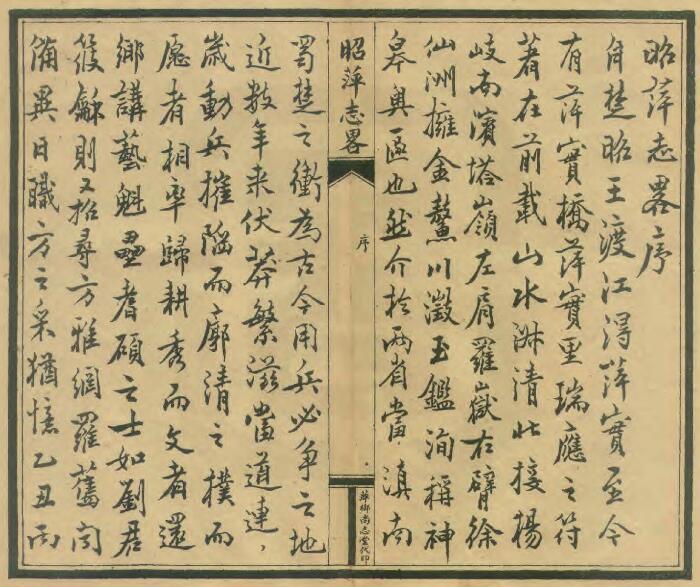 昭萍志畧序
自楚昭王渡江得萍實至今
有萍實橋萍實里瑞應之符
著在前載山水淋清北接楊
岐南濱塔嶺左肩羅嶽右臂徐
仙洲擁金鰲川瀓玉鑑洵稱神
皋奧區也然介於兩省當滇南
昭萍志畧
序
萍鄉尚志堂代印
蜀楚之衝為古今用兵必爭之地
近数年来伏莽繁滋當道連
歲動兵摧陷而廓清之樸而
愿者相率歸耕秀而文者還
鄉講藝魁壘耆碩之士如劉君
筱龢則又招尋方雅網羅舊聞
備異日職方之采猶憶乙丑丙